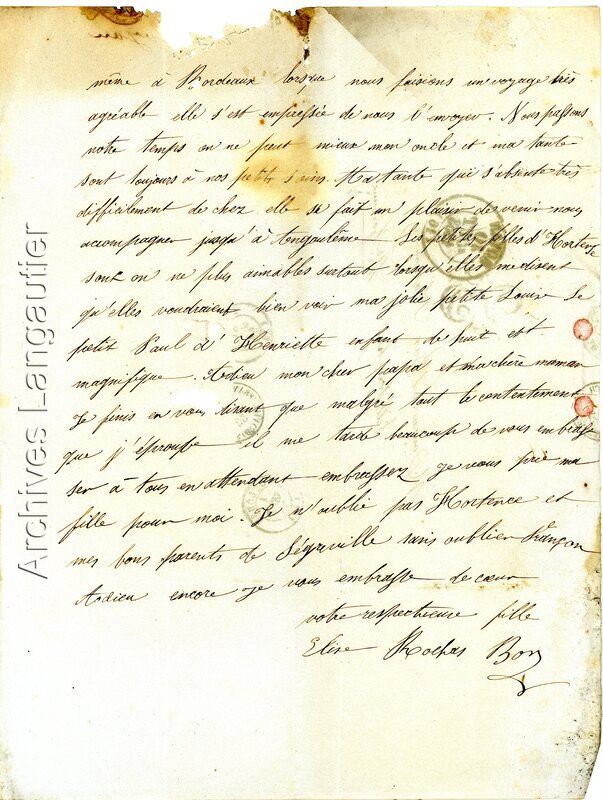 même à Bordeaux lorsque nous faisions un voyage très
agréable elle s'est empressée de nous l'envoyer. Nous passons
notre temps on ne peut mieux mon oncle et ma tante
sont toujours à nos petits soins. Ma tante qui s'absente très
difficilement de chez elle se fait un plaisir de venir nous
accompagner jusqu'à Angoulême Les petites filles d'Hortense
sont on ne plus aimables surtout lorsqu'elles me disent
qu'elles voudraient bien voir ma jolie petite Louise Le
petit Paul d'Henriette enfant de huit est
magnifique. Adieu mon cher papa et ma chère maman
Je finis en vous disant que malgré tout le contentement
que j'éprouve il me tarde beaucoup de vous embras
ser à tous en attendant embrassez je vous prie ma
fille pour moi. Je n'oublie pas Hortence et
mes bons parents de Ségrville sans oublier Françon
Adieu encore je vous embrasse de cœur
votre respectueuse fille
Elise Rochas Bon
Archives Langautier